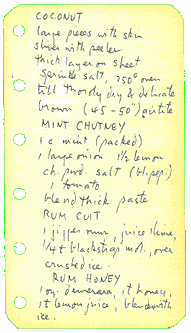 COCONUT
large pieces with skin
shave with peeler
thick layer on sheet
Sprinkle salt, 250° oven
till thoroly dry & delicate
brown (45-50")
MINT CHUTNEY
1 c mint (packed)
1 large onion 1½ lemon
ch. pwd. salt (bl. pep.)
1 tomato
blend thick paste
RUM CUIT
1 jigger rum, juice 1 lime,
1/4 t blackstrap mol., over
crusted ice.
RUM HONEY
1 oz. demerara, 1t honey,
1t lemon juice, blend with
ice.